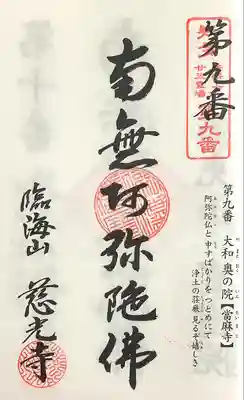 第九番
南無阿弥陀佛
臨海山 慈光寺
第九番 大和 奥の院【當麻寺】
阿弥陀仏と 申すばかりを つとめにて
浄土の荘厳 見るぞ嬉しき